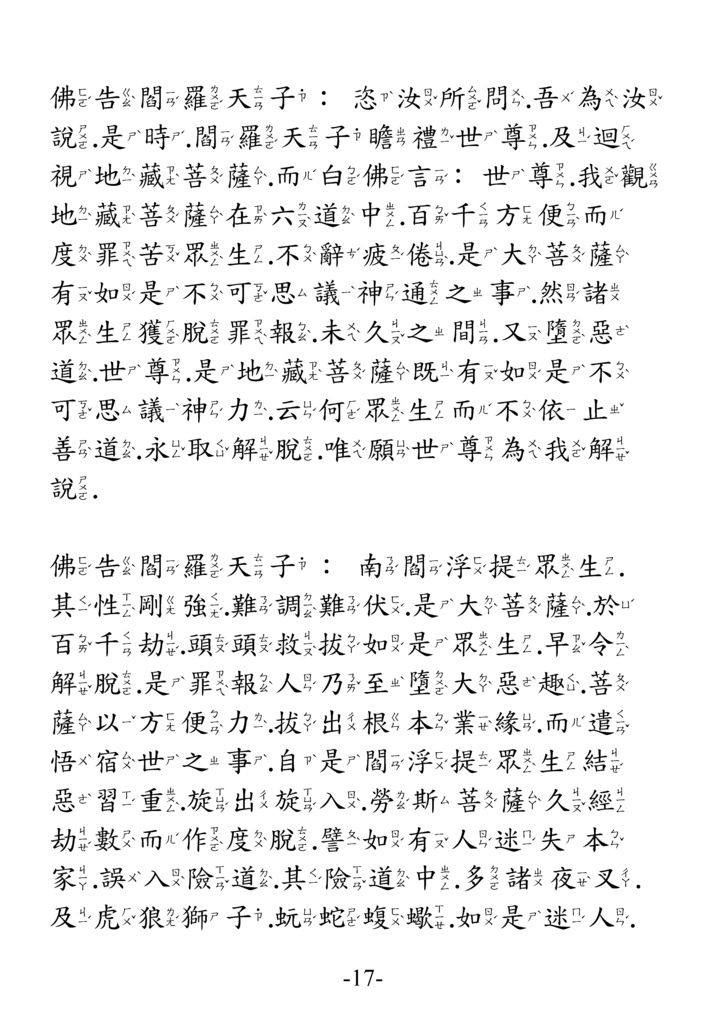 佛告閻羅天子： 恣汝所問.吾為汝
說.是時.閻羅天子瞻禮世尊.及迴
視地藏菩薩.而白佛言： 世尊.我觀
地藏菩薩在六道中.百千方便而
度罪苦眾生.不辭疲倦.是大菩薩
有如是不可思議神通之事.然諸
眾生獲脫罪報.未久之間.又墮惡
道.世尊.是地藏菩薩既有如是不
可思議神力.云何眾生而不依止
善道.永取解脫.唯願世尊為我解
說.
佛告閻羅天子： 南閻浮提眾生.
其性剛強.難調難伏.是大菩薩.於
百千劫.頭頭救拔如是眾生.早令
解脫.是罪報人乃至墮大惡趣.菩
薩以方便力.拔出根本業緣.而遣
悟宿世之事.自是閻浮提眾生結
惡習重.旋出旋入.勞斯菩薩久經
劫數而作度脫.譬如有人迷失本
家.誤入險道.其險道中.多諸夜叉.
及虎狼獅子.蚖蛇蝮蠍.如是迷人.
-17-